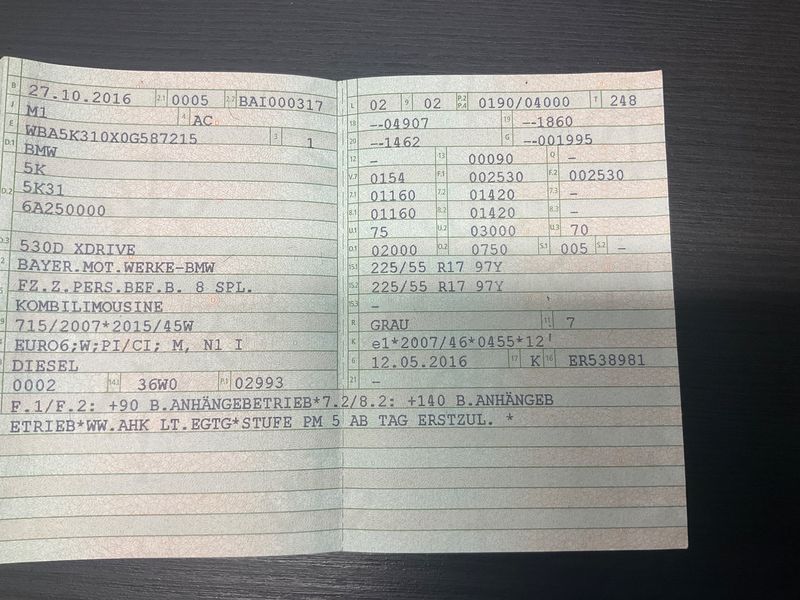 B 27.10.2016 2.1 0005 2.2 BAI000317
J M1 4 AC
E WBA5K310X0G587215 3 1
D.1 BMW
5K
D.2 5K31
6A250000
D.3 530D XDRIVE
2 BAYER.MOT.WERKE-BMW
FZ.Z.PERS.BEF.B. 8 SPL.
KOMBILIMOUSINE
715/2007*2015/45W
EURO6;W;PI/CI; M, N1 I
DIESEL
0002 14.1 36W0 P.1 02993
L 02 9 02 P.2 P.4 0190/04000 T 248
18 --04907 19 --1860
20 --1462 G --001995
12 - 13 00090 Q -
V.7 0154 F.1 002530 F.2 002530
7.1 01160 7.2 01420 7.3 -
8.1 01160 8.2 01420 8.3 -
U.1 75 U.2 03000 U.3 70
O.1 02000 O.2 0750 S.1 005 S.2 -
15.1 225/55 R17 97Y
15.2 225/55 R17 97Y
15.3 -
R GRAU 11 7
K e1*2007/46*0455*12
6 12.05.2016 17 K 16 ER538981
21 -
F.1/F.2: +90 B.ANHÄNGEBETRIEB*7.2/8.2: +140 B.ANHÄNGEB
ETRIEB*WW.AHK LT.EGTG*STUFE PM 5 AB TAG ERSTZUL. *